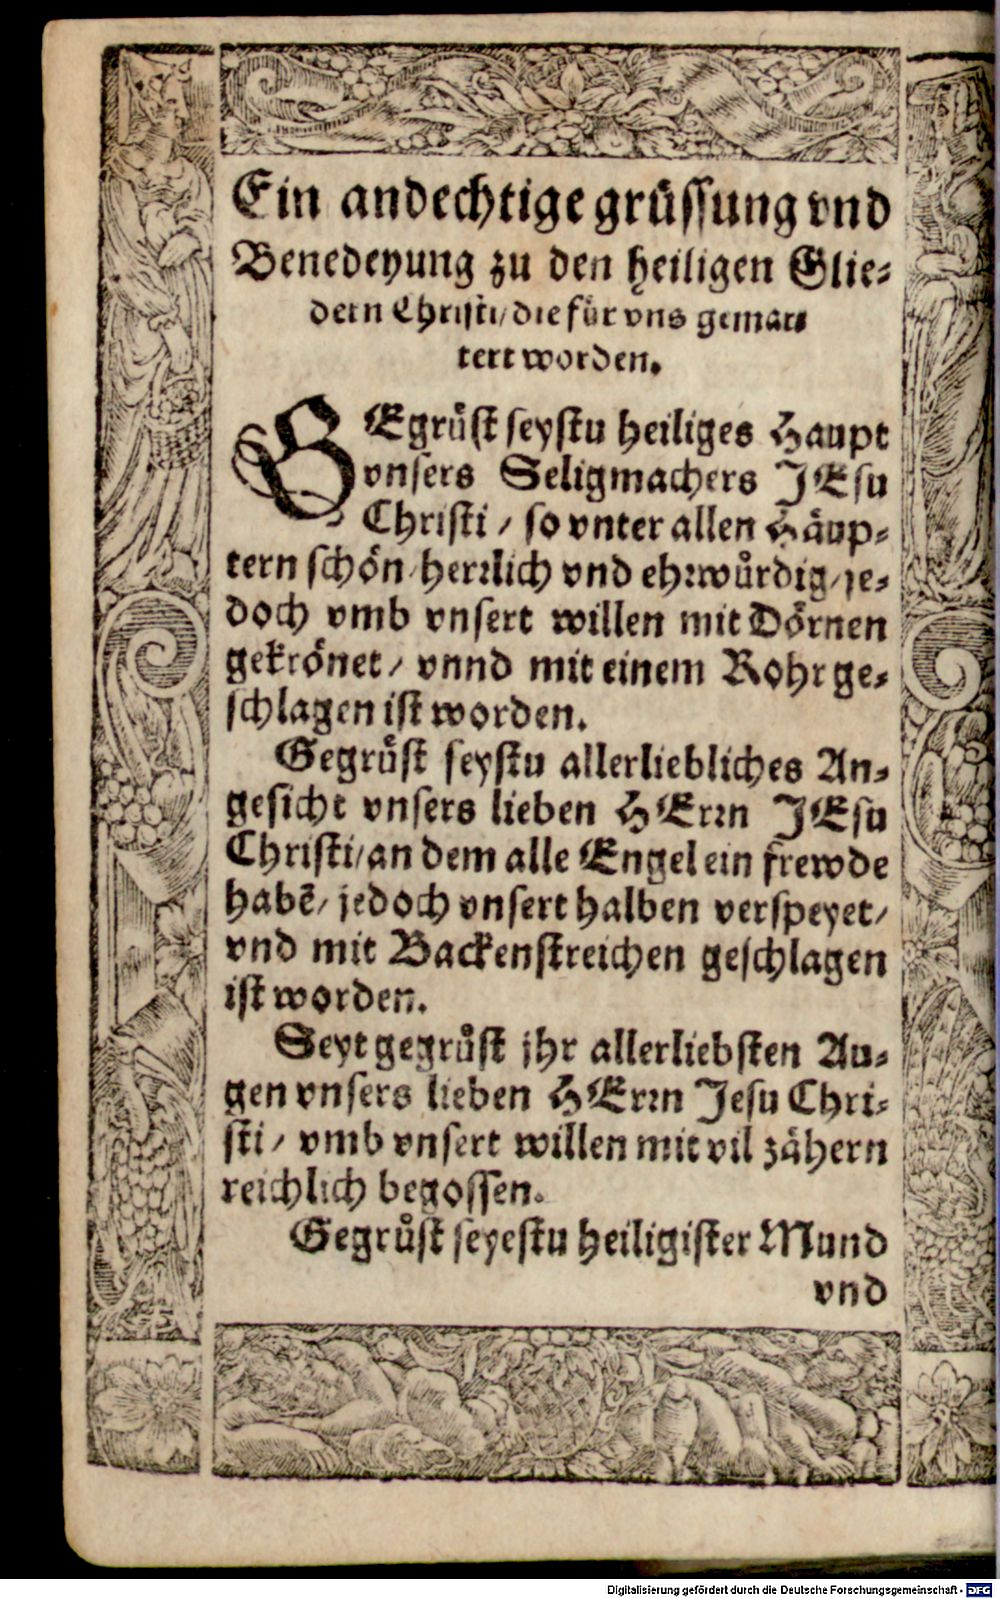 Ein andechtige grüssung vnd
Benedeyung zu den heiligen Glie-
dern Christi/ die für vns gemar-
tert worden.
GEgrüst seystu heiliges Haupt
vnsers Seligmachers JEsu
Christi / so vnter allen Häup-
tern schön/ herrlich vnd ehrwürdig/ je-
doch vmb vnsert willen mit Dörnen
gekrönet/ vnnd mit einem Rohr ge-
schlagen ist worden.
Gegrüst seystu allerliebliches An-
gesicht vnsers lieben HErrn JEsu
Christi/ an dem alle Engel ein frewde
habē/ jedoch vnsert halben verspeyet/
vnd mit Backenstreichen geschlagen
ist worden.
Seyt gegrüst jhr allerliebsten Au-
gen vnsers lieben HErrn Jesu Chri-
sti/ vmb vnsert willen mit vil zähern
reichlich begossen.
Gegrüst seyestu heiligister Mund
vnd
Digitalisierung gefördert durch die Deutsche Forschungsgemeinschaft - DFG